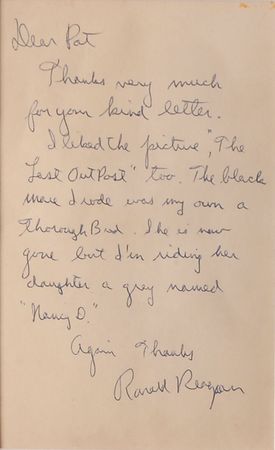 Dear Pat
Thanks very much
for your kind letter.
I liked the picture, "The
Last OutPost" too. The black
mare I rode was my own a
thoroughBred. She is now
gone but I'm riding her
daughter a grey named
"Nancy D."
Again Thanks
Ronald Reagan